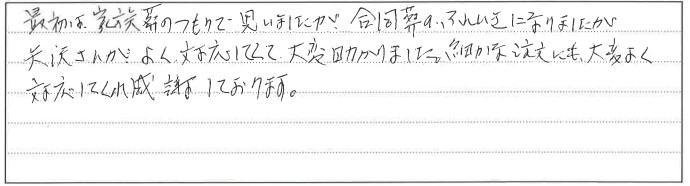 最初は家族葬のつもりで思いましたが、合同葬のふんいきになりましたが
矢沢さんがよく対応してくて大変助かりました。細かな注文にも、大変よく
対応してくれ感謝しております。